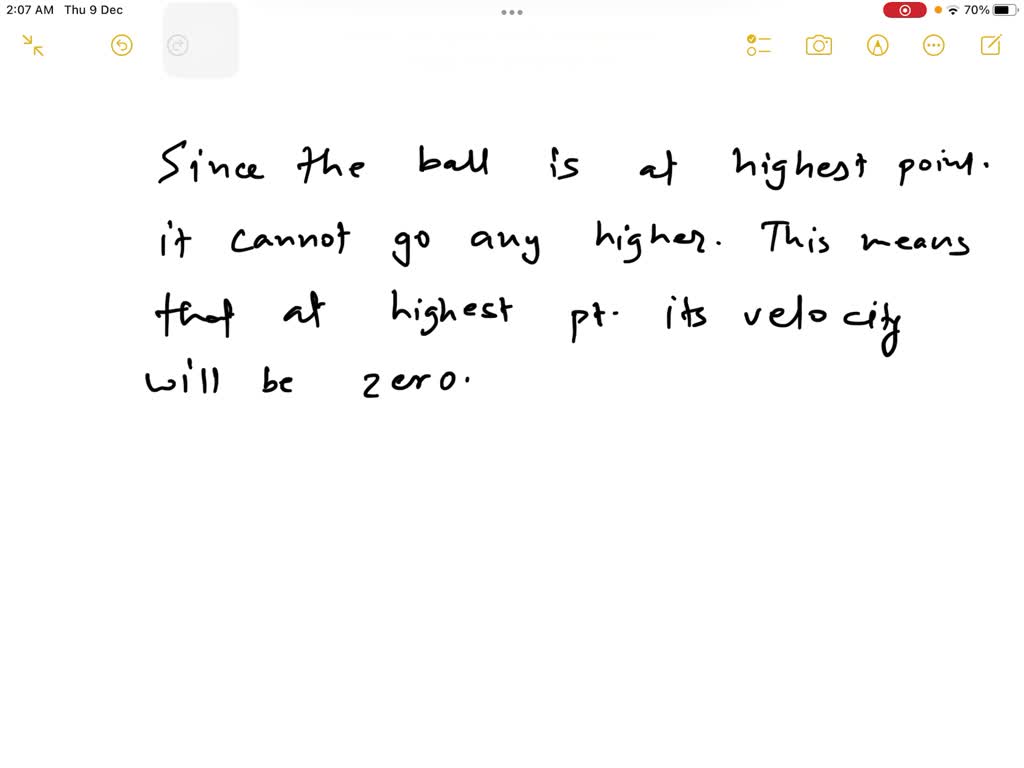 2:07 AM Thu 9 Dec
70%
Since the ball is at highest point.
it cannot go any higher. This means
that at highest pt. its velocity
will be zero.